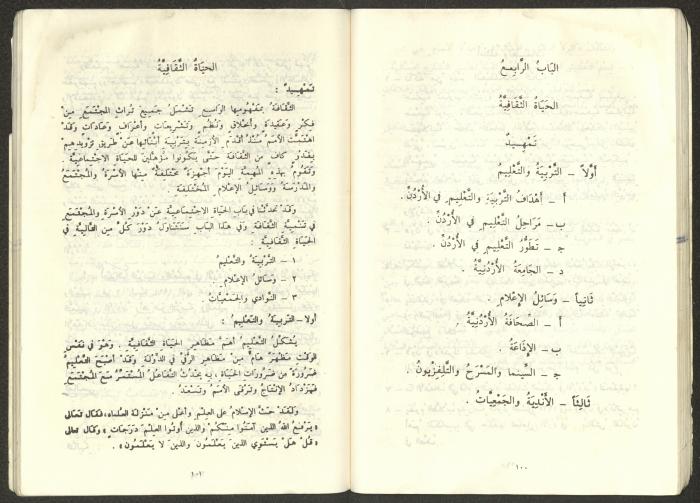 البَابُ الرَّابِعُ
الحَيَاةُ الثَّقَافِيَّةُ
تَمْهِيدٌ
أَوَّلاً – التَّرْبِيَةُ وَالتَّعْلِيمُ
أ – أَهْدَافُ التَّرْبِيَةِ وَالتَّعْلِيمِ فِي الأُرْدُنِّ .
ب – مَرَاحِلُ التَّعْلِيمِ فِي الأُرْدُنِّ .
جـ – تَطَوُّرُ التَّعْلِيمِ فِي الأُرْدُنِّ .
د – الجَامِعَةُ الأُرْدُنِيَّةُ .
ثَانِياً – وَسَائِلُ الإِعْلَامِ .
أ – الصِّحَافَةُ الأُرْدُنِيَّةُ .
ب – الإِذَاعَةُ .
جـ – السِّينما وَالمَسْرَحُ وَالتِّلِفِزْيُونُ .
ثَالِثاً – الأَنْدِيَةُ وَالجَمْعِيَّاتُ .
١٠٠
الحَيَاةُ الثَّقَافِيَّةُ
تَمْهِيدٌ :
الثَّقَافَةُ بِمَفْهُومِهَا الوَاسِعِ تَشْمَلُ جَمِيعَ تُرَاثِ المُجْتَمَعِ مِنْ
فِكْرٍ وَعَقِيدَةٍ وَأَخْلَاقٍ وَنُظُمٍ وَتَشْرِيعَاتٍ وَأَعْرَافٍ وَعَادَاتٍ وَقَدْ
اهْتَمَّتِ الأُمَمُ مُنْذُ أَقْدَمِ الأَزْمِنَةِ بِتَرْبِيَةِ أَبْنَائِهَا عَنْ طَرِيقِ تَزْوِيدِهِمْ
بِقَدْرٍ كَافٍ مِنَ الثَّقَافَةِ حَتَّى يَكُونُوا مُؤَهَّلِينَ لِلْحَيَاةِ الاجْتِمَاعِيَّةِ .
وَتَقُومُ بِهَذِهِ المُهِمَّةِ اليَوْمَ أَجْهِزَةٌ مُخْتَلِفَةٌ مِنْهَا الأُسْرَةُ وَالمُجْتَمَعُ
وَالمَدْرَسَةُ وَوَسَائِلُ الإِعْلَامِ المُخْتَلِفَةُ .
وَقَدْ تَحَدَّثْنَا فِي بَابِ الحَيَاةِ الاجْتِمَاعِيَّةِ عَنْ دَوْرِ الأُسْرَةِ وَالمُجْتَمَعِ
فِي تَنْمِيَةِ الثَّقَافَةِ وَفِي هَذَا البَابِ سَنَتَنَاوَلُ دَوْرَ كُلٍّ مِنَ التَّالِيَةِ فِي
الحَيَاةِ الثَّقَافِيَّةِ :
١ – التَّرْبِيَةُ وَالتَّعْلِيمُ
٢ – وَسَائِلُ الإِعْلَامِ .
٣ – النَّوَادِي وَالجَمْعِيَّاتُ .
أولا – التَّرْبِيَةُ وَالتَّعْلِيمُ :
يُشَكِّلُ التَّعْلِيمُ أَهَمَّ مَظَاهِرِ الحَيَاةِ الثَّقَافِيَّةِ . وَهُوَ فِي نَفْسِ
الوَقْتِ مَظْهَرٌ هَامٌّ مِنْ مَظَاهِرِ الرُّقِيِّ فِي الدَّوْلَةِ وَقَدْ أَصْبَحَ التَّعْلِيمُ
ضَرُورَةً مِنْ ضَرُورَاتِ الحَيَاةِ ، بِهِ يَحْدُثُ التَّفَاعُلُ المُسْتَمِرُّ مَعَ المُجْتَمَعِ
فَيَزْدَادُ الإِنْتَاجُ وَتَرْقَى الأُمَمُ وَتَسْعَدُ .
وَلَقَدْ حَثَّ الإِسْلَامُ عَلَى العِلْمِ وَأَجَلَّ مِنْ مَنْزِلَةِ العُلَمَاءِ، فَقَالَ تَعَالَى
« يَرْفَعِ اللهُ الَّذِينَ آمَنُوا مِنْكُمْ وَالَّذِينَ أُوتُوا العِلْمَ دَرَجَاتٍ » وَقَالَ تعالى
« قُلْ هَلْ يَسْتَوِي الَّذِينَ يَعْلَمُونَ وَالَّذِينَ لَا يَعْلَمُونَ » .
١٠١